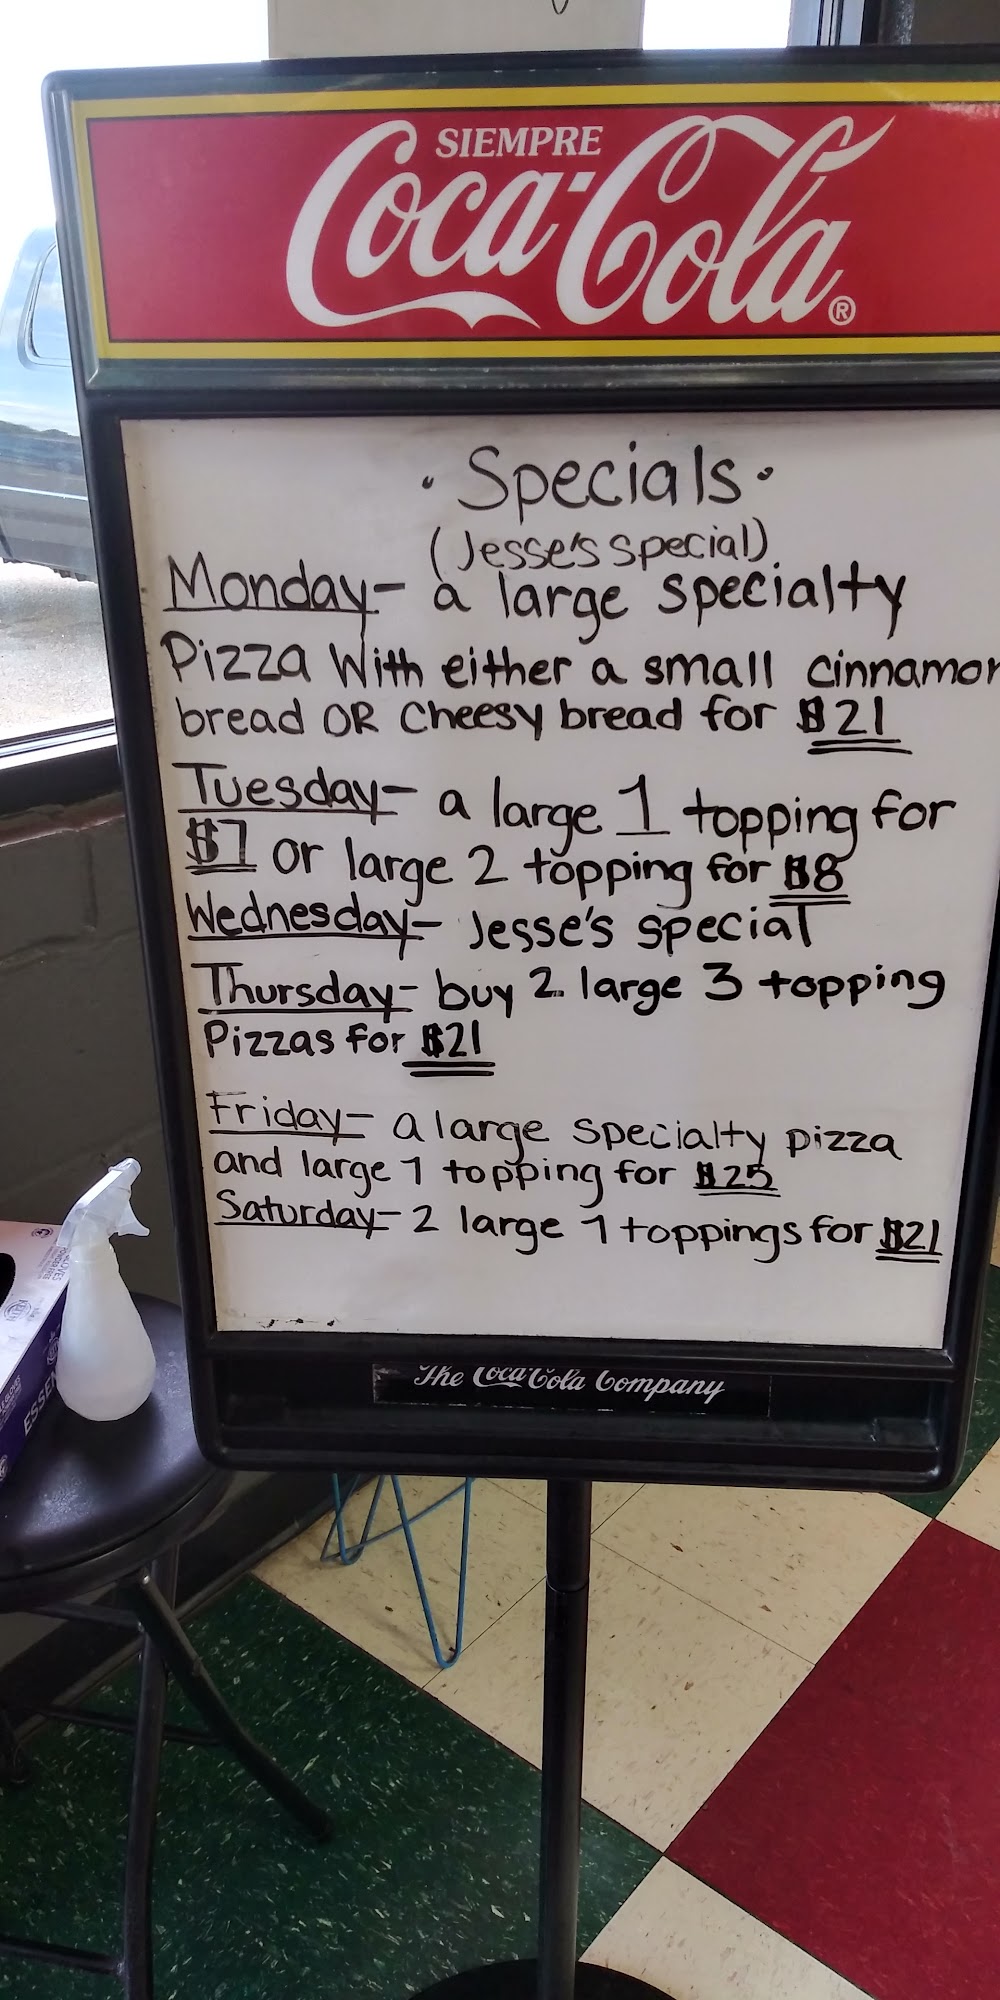 SIEMPRE
Coca-Cola®
· Specials ·
(Jesse's special)
Monday- a large specialty
Pizza With either a small cinnamon
bread OR Cheesy bread for $21
Tuesday- a large 1 topping for
$7 or large 2 topping for $8
Wednesday- Jesse's special
Thursday- buy 2 large 3 topping
Pizzas for $21
Friday- a large specialty pizza
and large 1 topping for $25
Saturday- 2 large 1 toppings for $21
The Coca-Cola Company
ESSEN